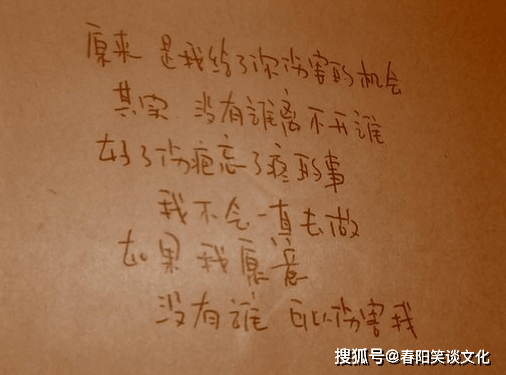 原来 是我给了你伤害的机会
其实 没有谁离不开谁
好了伤疤忘了疼的事
我不会一直去做
如果我愿意
没有谁 可以伤害我
搜狐号@春阳笑谈文化